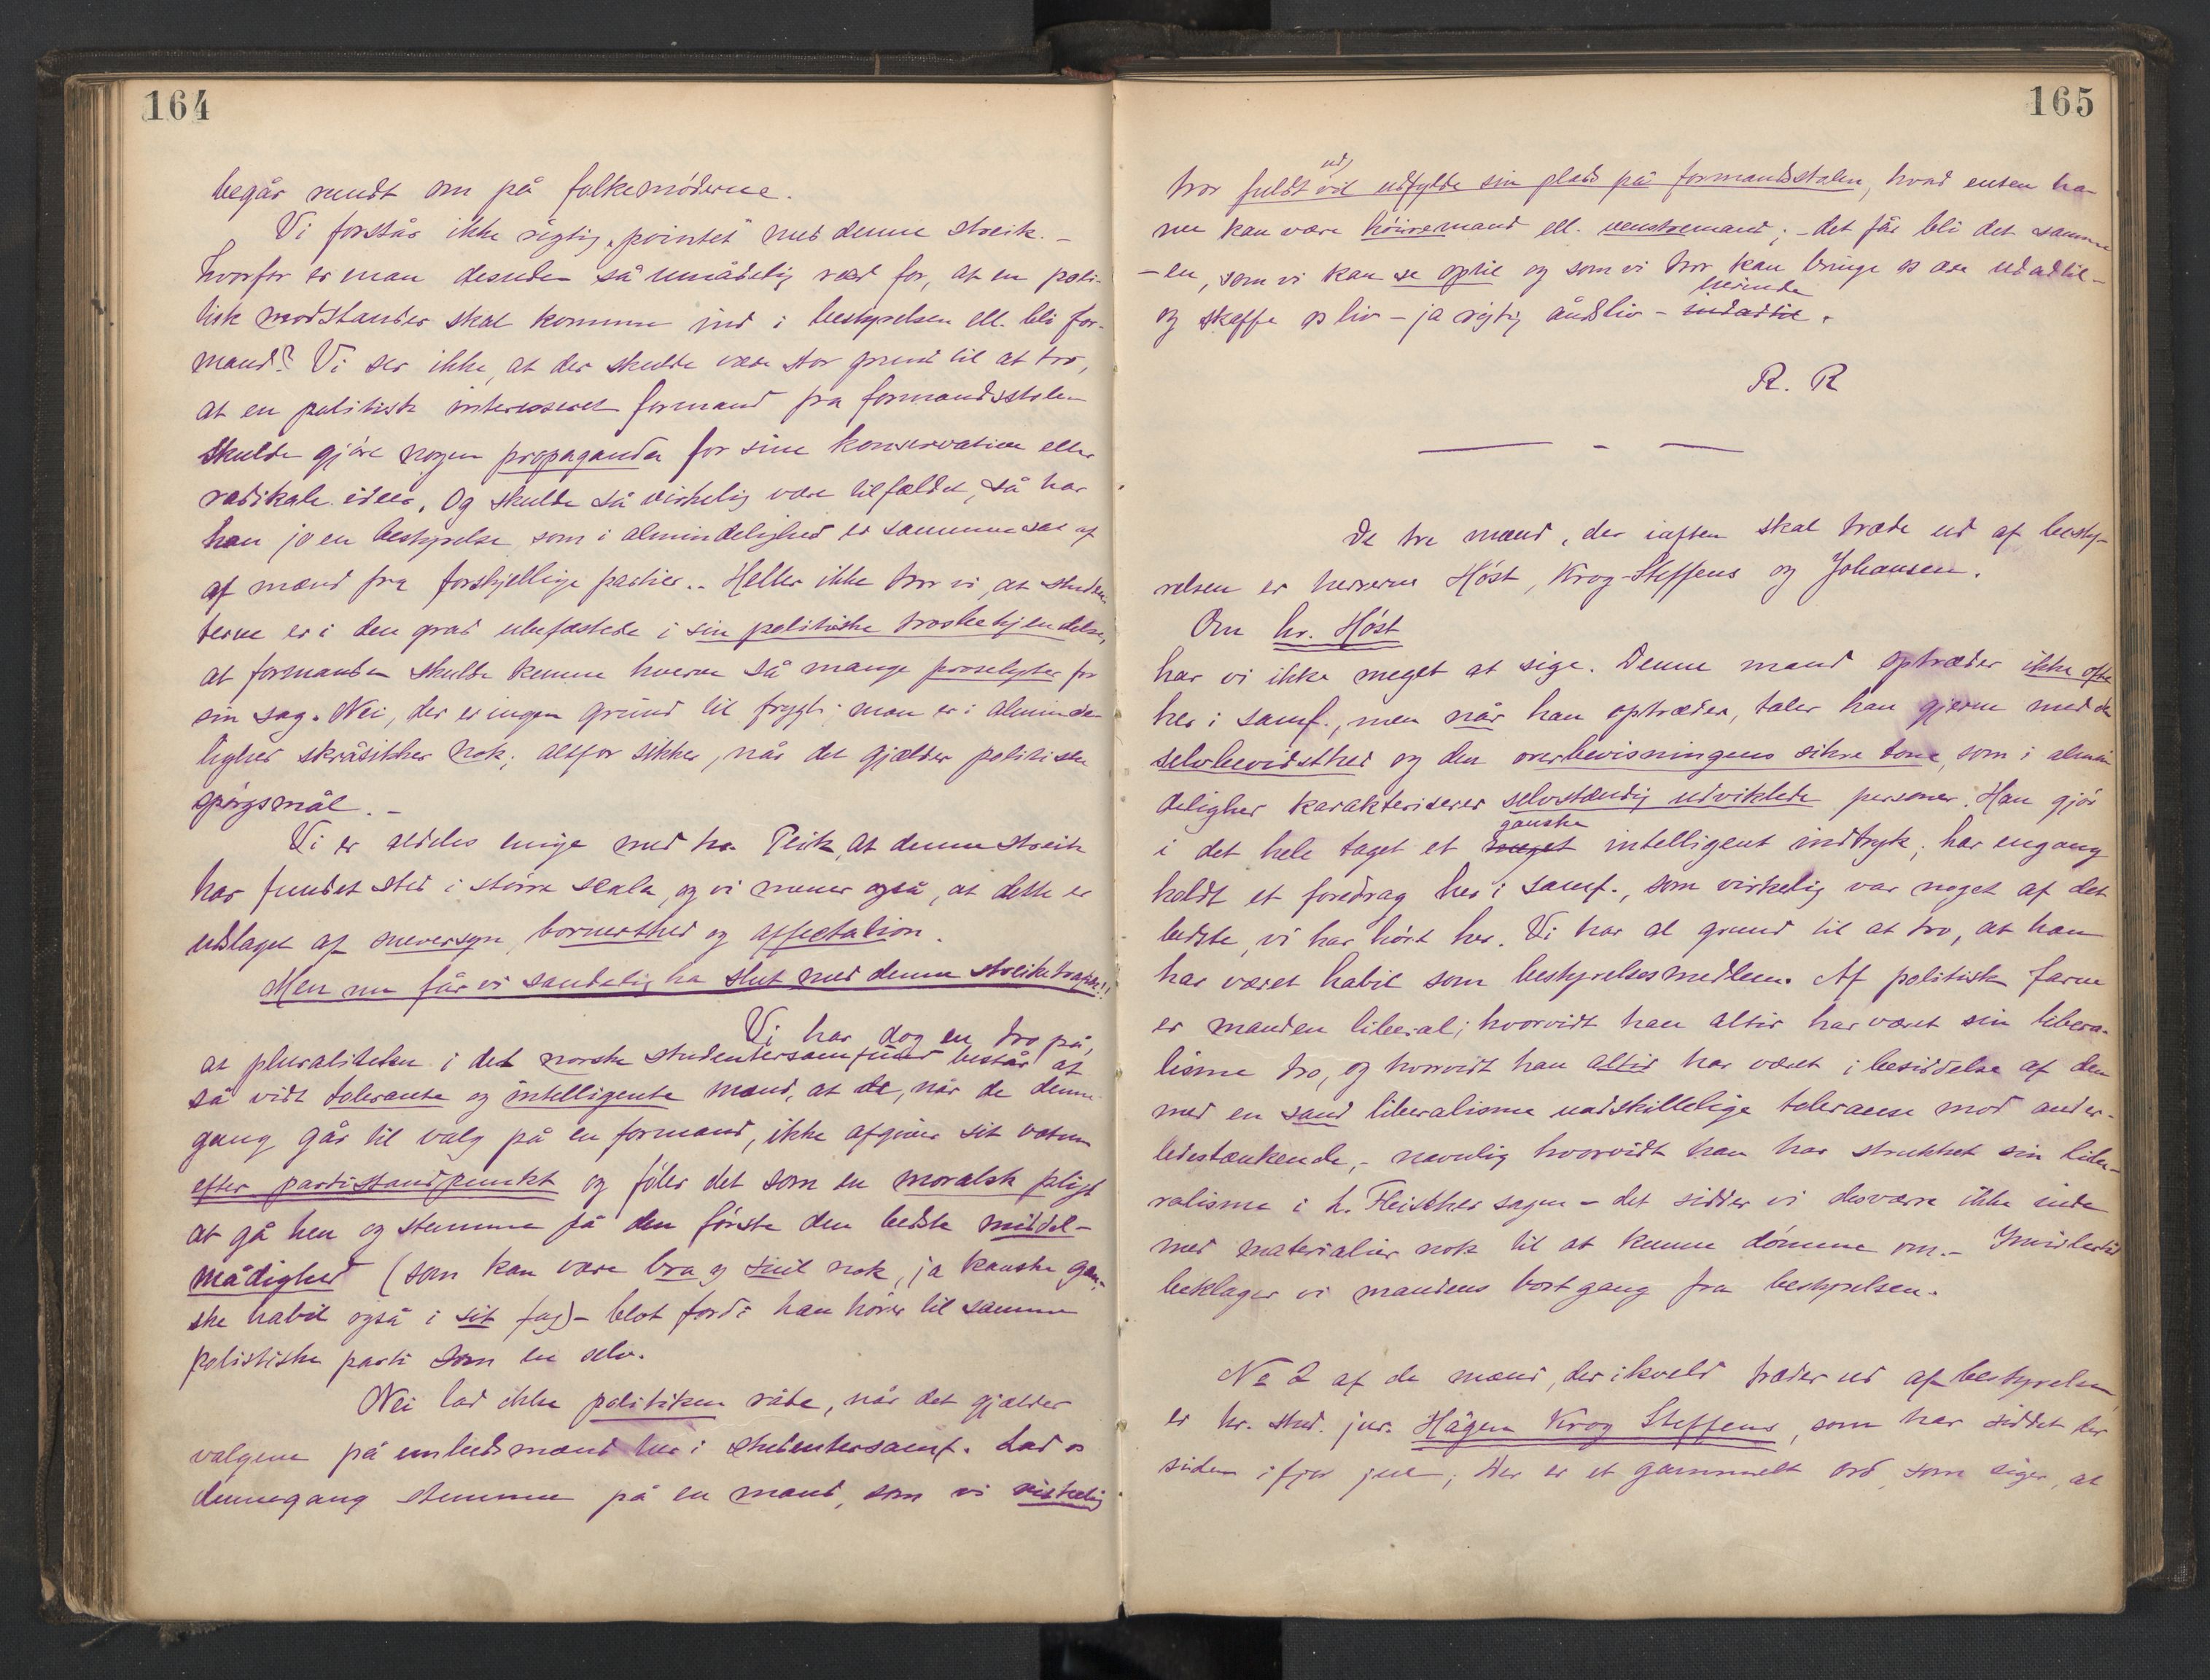 164
begår rundt om på folkemøderne.
Vi forstår ikke rigtig "pointet" med denne streik. –
Hvorfor er man desuden så umådelig ræd for, at en poli-
tisk modstander skal komme ind i bestyrelsen ell. bli for-
mand? Vi ser ikke, at der skulde være stor grund til at tro,
at en politisk interesseret formand fra formandsstolen
skulde gjøre nogen propaganda for sine konservative eller
radikale ideer. Og skulde så virkelig være tilfældet, så har
han jo en bestyrelse som i almindelighed er sammensat af
af mænd fra forskjellige partier. – Heller ikke tror vi, at studen-
terne er i den grad ubefæstede i sin politiske trosbekjendelse,
at formanden skulde kunne hverve så mange proselyter for
sin sag. Nei, der er ingen grund til frygt; man er i alminde-
lighed skråsikker nok; altfor sikker, når det gjælder politiske
spørgsmål. –
Vi er aldeles enige med hr. Peik, at denne streik
har fundet sted i større scala, og vi mener også, at dette er
udslaget af sneversyn, bornerthed og affectation.
Men nu får vi sandelig ha slut med denne streiketrafik!!
Vi har dog en tro på,
at pluraliteten i det norske studentersamfund består af
så vidt tolerante og intelligente mænd, at de, når de denne
gang går til valg på en formand, ikke afgiver sit votum
efter partistandpunkt og føler det som en moralsk pligt
at gå hen og stemme på den første den bedste middel-
mådighed (som kan være bra og snil nok, ja kanske gan-
ske habil også i sit fag) – blot fordi han hører til samme
politiske parti som en selv.
Nei lad ikke politiken råde, når det gjælder
valgene på embedsmænd her i studentersamf. Lad os
dennegang stemme på en mand, som vi virkelig
165
tror fuldt ud vil udfylde sin plads på formandsstolen, hvad enten han
nu kan være høiremand ell. venstremand; – det får bli det samme
– en, som vi kan se optil og som vi tror kan bringe os ære udadtil –
og skaffe os liv – ja rigtig åndsliv – herinde indadtil.
R. R
De tre mænd, der iaften skal træde ud af besty-
relsen er herrerne Høst, Krog-Steffens og Johansen.
Om hr. Høst
har vi ikke meget at sige. Denne mand optræder ikke ofte
her i samf., men når han optræder, taler han gjerne med den
selvbevidsthed og den overbevisningens sikre tone, som i almin
delighed karakteriserer selvstændig udviklede personer. Han gjør
i det hele taget et meget ganske intelligent indtryk; har engang
holdt et foredrag her i samf., som virkelig var noget af det
bedste, vi har hørt her. Vi har al grund til at tro, at han
har været habil som bestyrelsesmedlem. Af politisk farve
er manden liberal; hvorvidt han altid har været sin libera-
lisme tro, og hvorvidt han altid har været i besiddelse af den
med en sand liberalisme uadskillelige tolerance mod ander-
ledestænkende, – navnlig hvorvidt han har strukket sin libe-
ralisme i L. Fleischer sagen – det sidder vi desværre ikke inde
med materialier nok til at kunne dømme om. – Imidlertid
beklager vi mandens bortgang fra bestyrelsen.
No 2 af de mænd, der ikveld træder ud af bestyrelsen,
er hr. stud. jur. Hågen Krog Steffens, som har siddet der
siden ifjor jul; Der er et gammelt ord, som siger, at